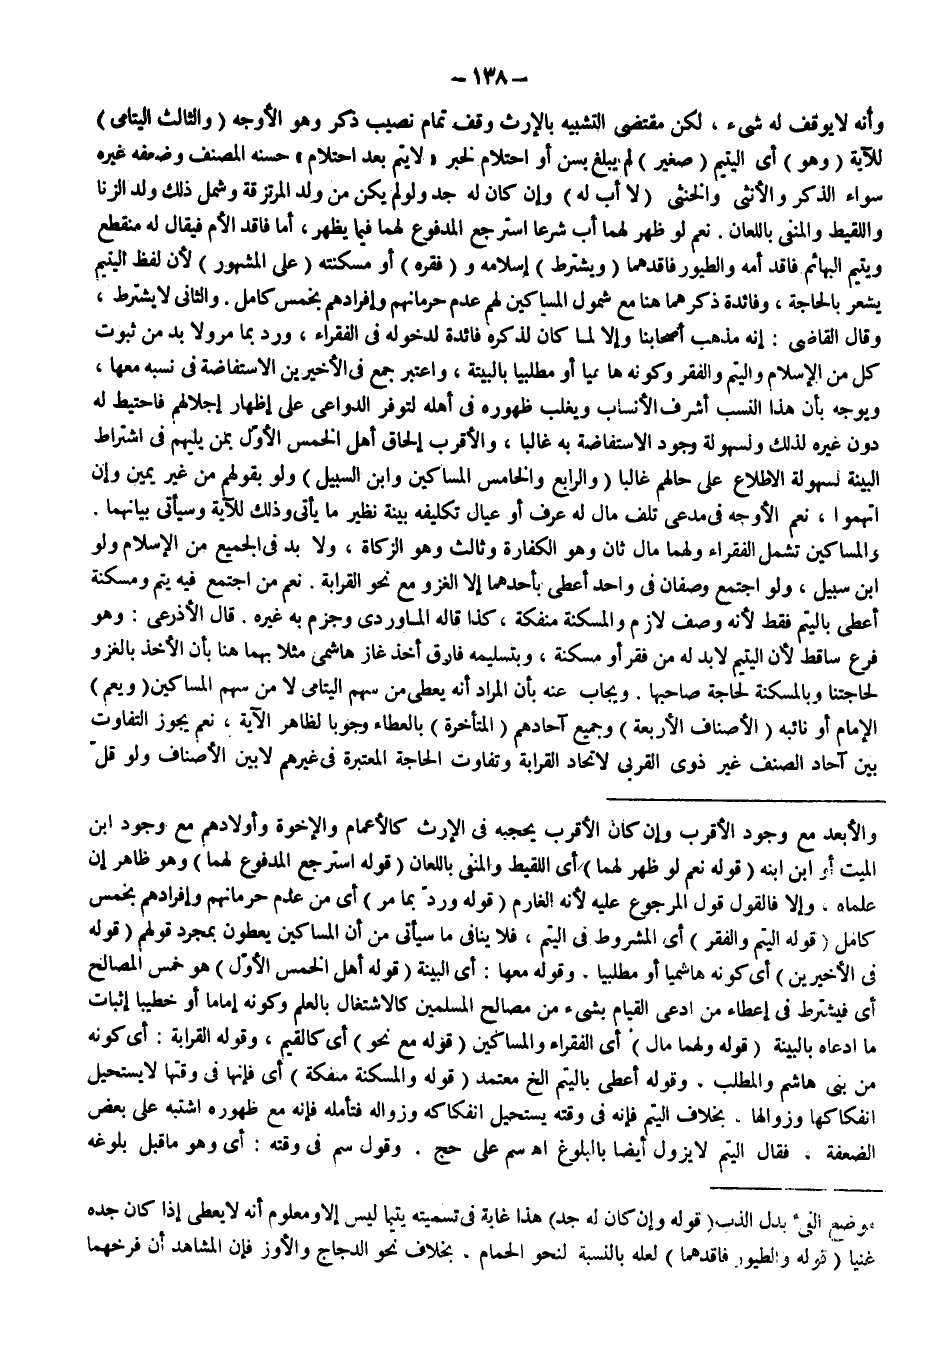 – ١٣٨ –
وأنه لايوقف له شىء ، لكن مقتضى التشبيه بالإرث وقف تمام نصيب ذكر وهو الأوجه ( والثالث اليتامى )
للآية ( وهو ) أى اليتيم ( صغير ) لم يبلغ بسن أو احتلام لخبر « لايتم بعد احتلام » حسنه المصنف وضعفه غيره
سواء الذكر والأنثى والخنثى ( لا أب له ) وإن كان له جد ولو لم يكن من ولد المرتزقة وشمل ذلك ولد الزنا
واللقيط والمنفى باللعان . نعم لو ظهر لهما أب شرعا استرجع المدفوع لهما فيما يظهر ، أما فاقد الأم فيقال له منقطع
ويتيم البهائم فاقد أمه والطيور فاقدهما ( ويشترط ) إسلامه و ( فقره ) أو مسكنته ( على المشهور ) لأن لفظ اليتيم
يشعر بالحاجة ، وفائدة ذكرهما هنا مع شمول المساكين لهم عدم حرمانهم وإفرادهم بخمس كامل . والثانى لايشترط ،
وقال القاضى : إنه مذهب أصحابنا وإلا لما كان لذكره فائدة لدخوله فى الفقراء ، ورد بما مر ولا بد من ثبوت
كل من الإسلام واليتم والفقر وكونه هاشميا أو مطلبيا بالبينة ، واعتبر جمع فى الأخيرين الاستفاضة فى نسبه معها ،
ويوجه بأن هذا النسب أشرف الأنساب ويغلب ظهوره فى أهله لتوفر الدواعى على إظهار إجلالهم فاحتيط له
دون غيره لذلك ولسهولة وجود الاستفاضة به غالبا ، والأقرب إلحاق أهل الخمس الأوّل بمن يليهم فى اشتراط
البينة لسهولة الاطلاع على حالهم غالبا ( والرابع والخامس المساكين وابن السبيل ) ولو بقولهم من غير يمين وإن
اتهموا ، نعم الأوجه فى مدعى تلف مال له عرف أو عيال تكليفه بينة نظير ما يأتى وذلك للآية وسيأتى بيانهما .
والمساكين تشمل الفقراء ولهما مال ثان وهو الكفارة وثالث وهو الزكاة ، ولا بد فى الجميع من الإسلام ولو
ابن سبيل ، ولو اجتمع وصفان فى واحد أعطى بأحدهما إلا الغزو مع نحو القرابة . نعم من اجتمع فيه يتم ومسكنة
أعطى باليتم فقط لأنه وصف لازم والمسكنة منفكة ، كذا قاله الماوردى وجزم به غيره . قال الأذرعى : وهو
فرع ساقط لأن اليتيم لابد له من فقر أو مسكنة ، وبتسليمه فارق أخذ غاز هاشمى مثلا بهما هنا بأن الأخذ بالغزو
لحاجتنا وبالمسكنة لحاجة صاحبها . ويجاب عنه بأن المراد أنه يعطى من سهم اليتامى لا من سهم المساكين ( ويعم )
الإمام أو نائبه ( الأصناف الأربعة ) وجميع آحادهم ( المتأخرة ) بالعطاء وجوبا لظاهر الآية ، نعم يجوز التفاوت
بين آحاد الصنف غير ذوى القربى لاتحاد القرابة وتفاوت الحاجة المعتبرة فى غيرهم لابين الأصناف ولو قلّ
والأبعد مع وجود الأقرب وإن كان الأقرب يحجبه فى الإرث كالأعمام والإخوة وأولادهم مع وجود ابن
الميت أو ابن ابنه ( قوله نعم لو ظهر لهما ) أى اللقيط والمنفى باللعان ( قوله استرجع المدفوع لهما ) وهو ظاهر إن
علماه . وإلا فالقول قول المرجوع عليه لأنه الغارم ( قوله وردّ بما مر ) أى من عدم حرمانهم وإفرادهم بخمس
كامل ( قوله اليتم والفقر ) أى المشروط فى اليتم ، فلا ينافى ما سيأتى من أن المساكين يعطون بمجرد قولهم ( قوله
فى الأخيرين ) أى كونه هاشميا أو مطلبيا . وقوله معها : أى البينة ( قوله أهل الخمس الأوّل ) هو خمس المصالح
أى فيشترط فى إعطاء من ادعى القيام بشىء من مصالح المسلمين كالاشتغال بالعلم وكونه إماما أو خطيبا إثبات
ما ادعاه بالبينة ( قوله ولهما مال ) أى الفقراء والمساكين ( قوله مع نحو ) أى كالقيم ، وقوله القرابة : أى كونه
من بنى هاشم والمطلب . وقوله أعطى باليتم الخ معتمد ( قوله والمسكنة منفكة ) أى فإنها فى وقتها لايستحيل
انفكاكها وزوالها . بخلاف اليتم فإنه فى وقته يستحيل انفكاكه وزواله فتأمله فإنه مع ظهوره اشتبه على بعض
الضعفة . فقال اليتم لايزول أيضا بالبلوغ اه سم على حج . وقول سم فى وقته : أى وهو ماقبل بلوغه
موضع الفىء بدل الذب ( قوله وإن كان له جد ) هذا غاية فى تسميته يتيما ليس إلا ومعلوم أنه لايعطى إذا كان جده
غنيا ( قوله والطيور فاقدهما ) لعله بالنسبة لنحو الحمام . بخلاف نحو الدجاج والأوز فإن المشاهد أن فرخهما